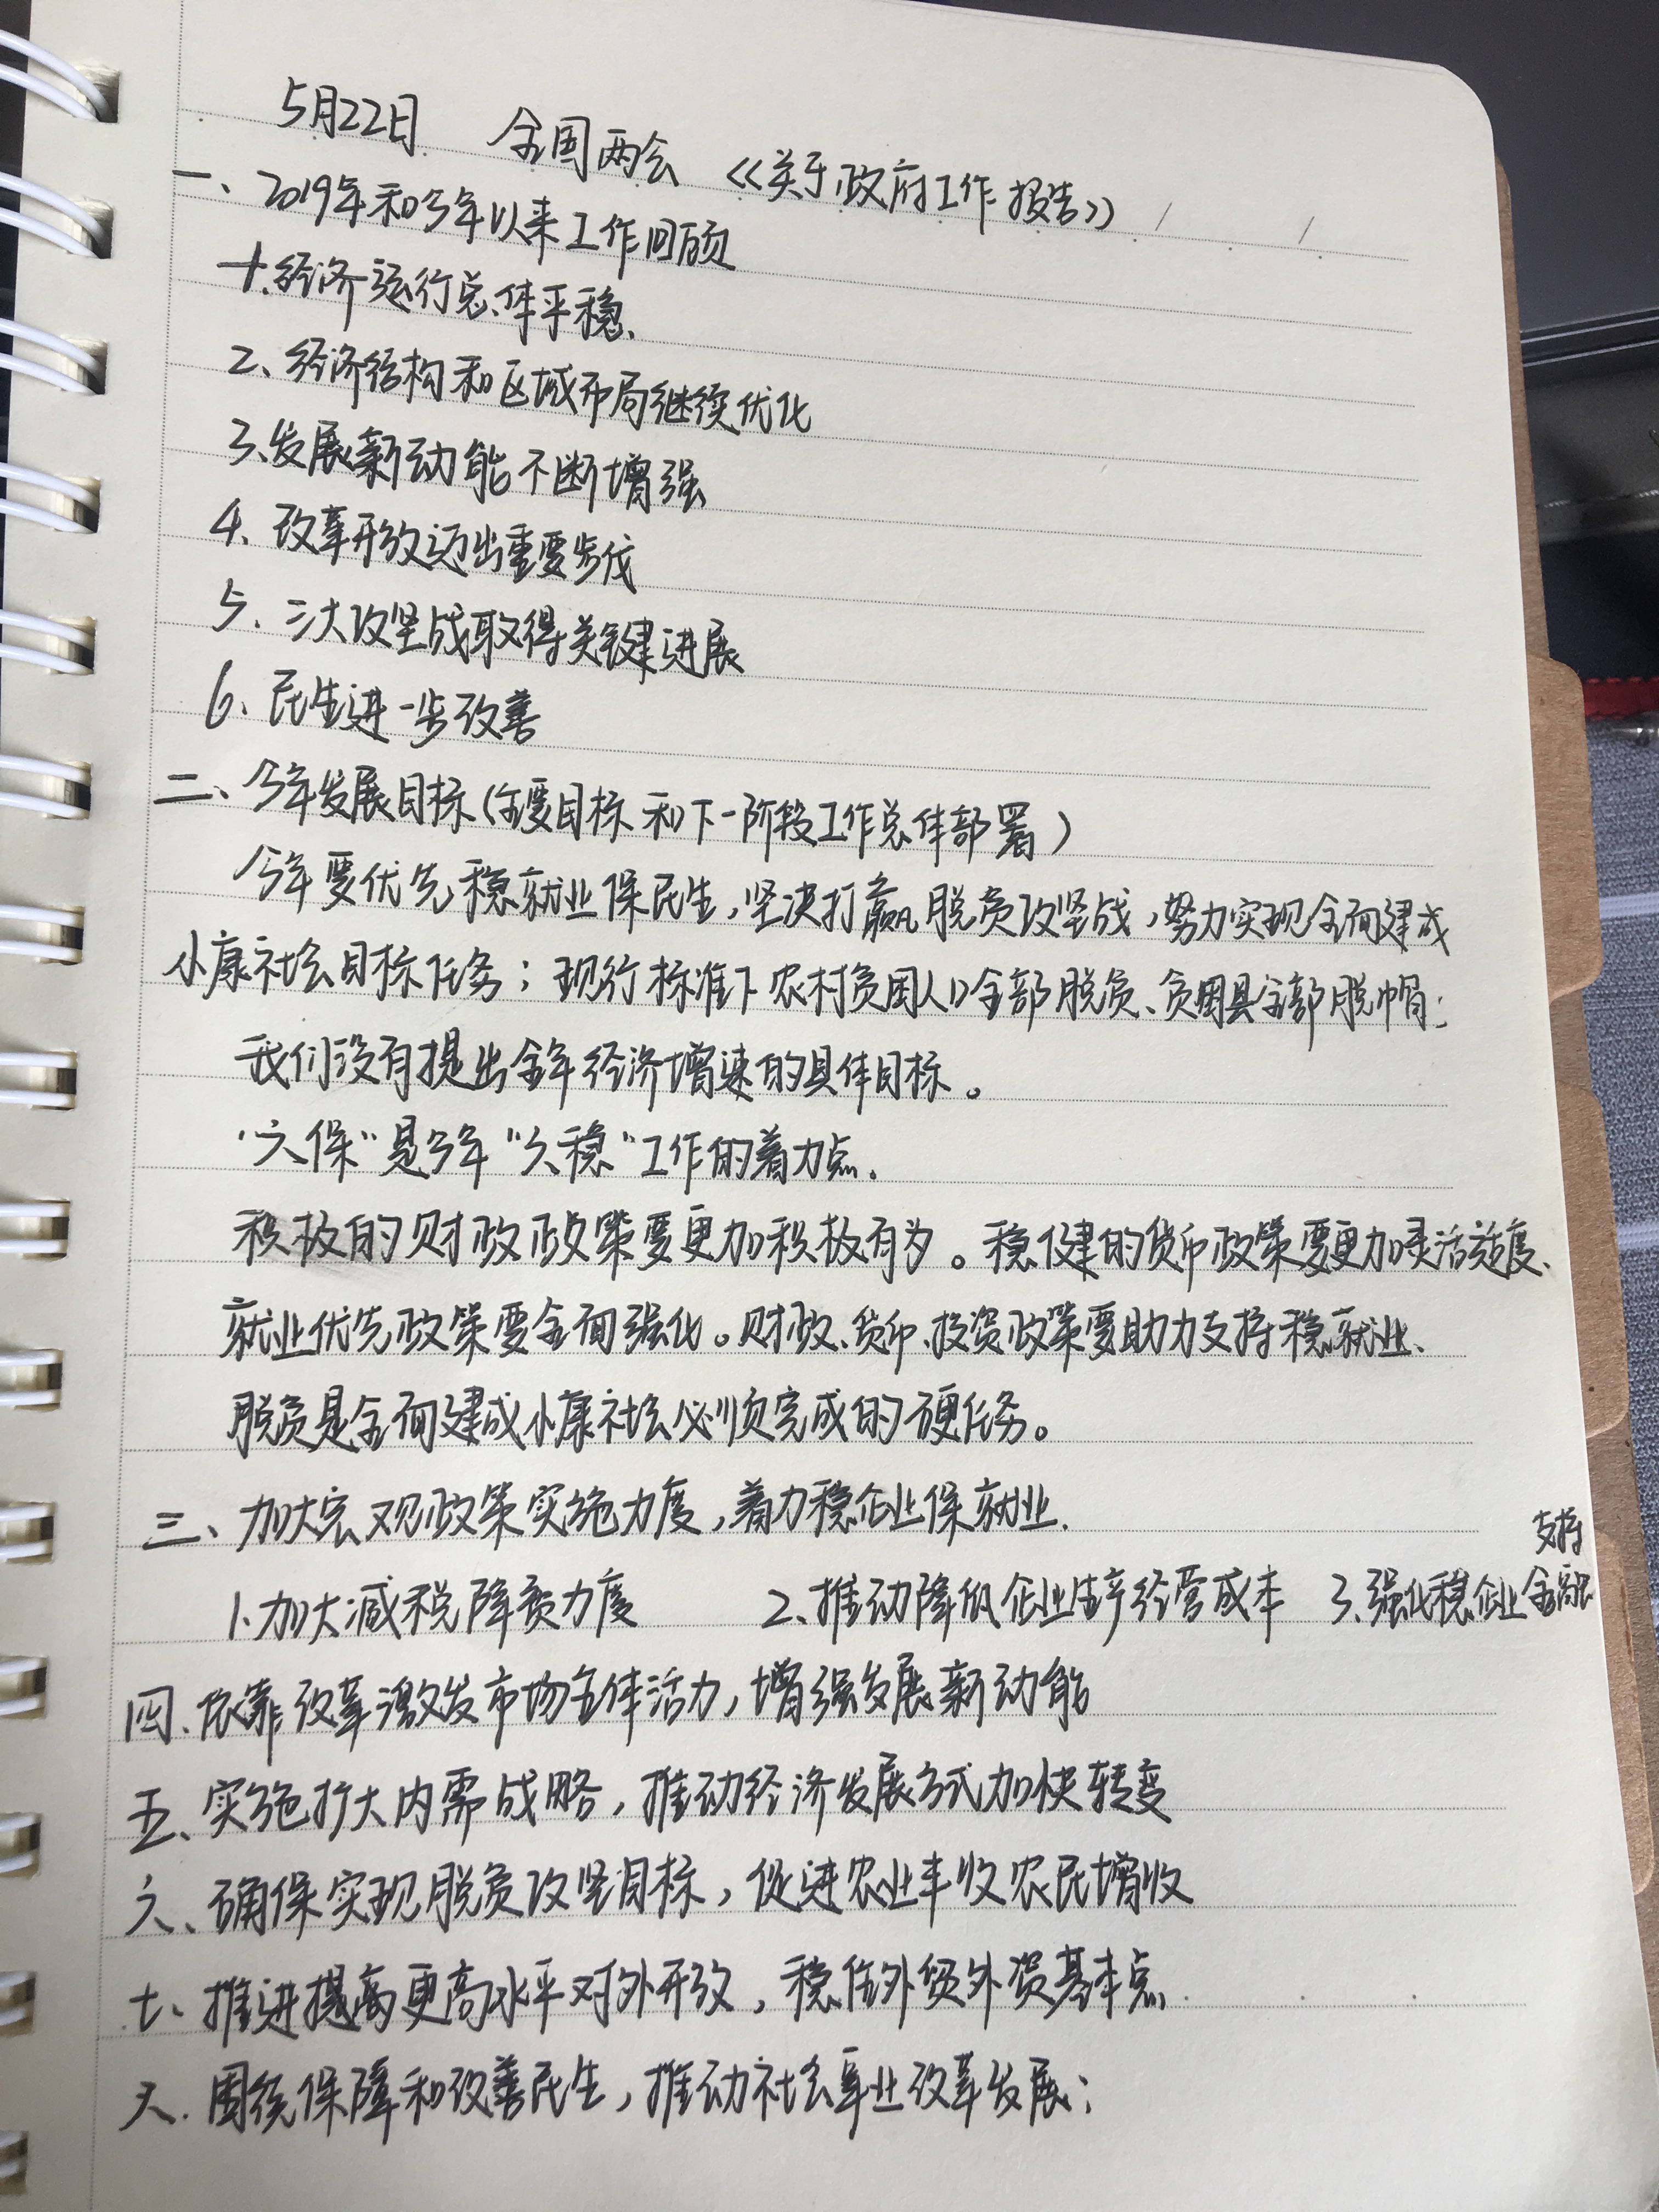 5月22日 全国两会 《关于政府工作报告》
一、2019年和今年以来工作回顾
1.经济运行总体平稳、
2、经济结构和区域布局继续优化
3、发展新动能不断增强
4、改革开放迈出重要步伐
5、三大攻坚战取得关键进展
6、民生进一步改善
二、今年发展目标(主要目标和下一阶段工作总体部署)
今年要优先稳就业保民生,坚决打赢脱贫攻坚战,努力实现全面建成
小康社会目标任务;现行标准下农村贫困人口全部脱贫、贫困县全部脱帽;
我们没有提出全年经济增速的具体目标。
"六保"是今年"六稳"工作的着力点.
积极的财政政策要更加积极有为。稳健的货币政策要更加灵活适度、
就业优先政策要全面强化。财政、货币、投资政策要助力支持稳就业、
脱贫是全面建成小康社会必须完成的硬任务。
三、加大宏观政策实施力度,着力稳企业保就业.
1、加大减税降费力度 2、推动降低企业生产经营成本 3、强化稳企业金融
支持
四、依靠改革激发市场主体活力,增强发展新动能
五、实施扩大内需战略,推动经济发展方式加快转变
六、确保实现脱贫攻坚目标,促进农业丰收农民增收
七、推进提高更高水平对外开放,稳住外贸外资基本点
八、围绕保障和改善民生,推动社会事业改革发展;